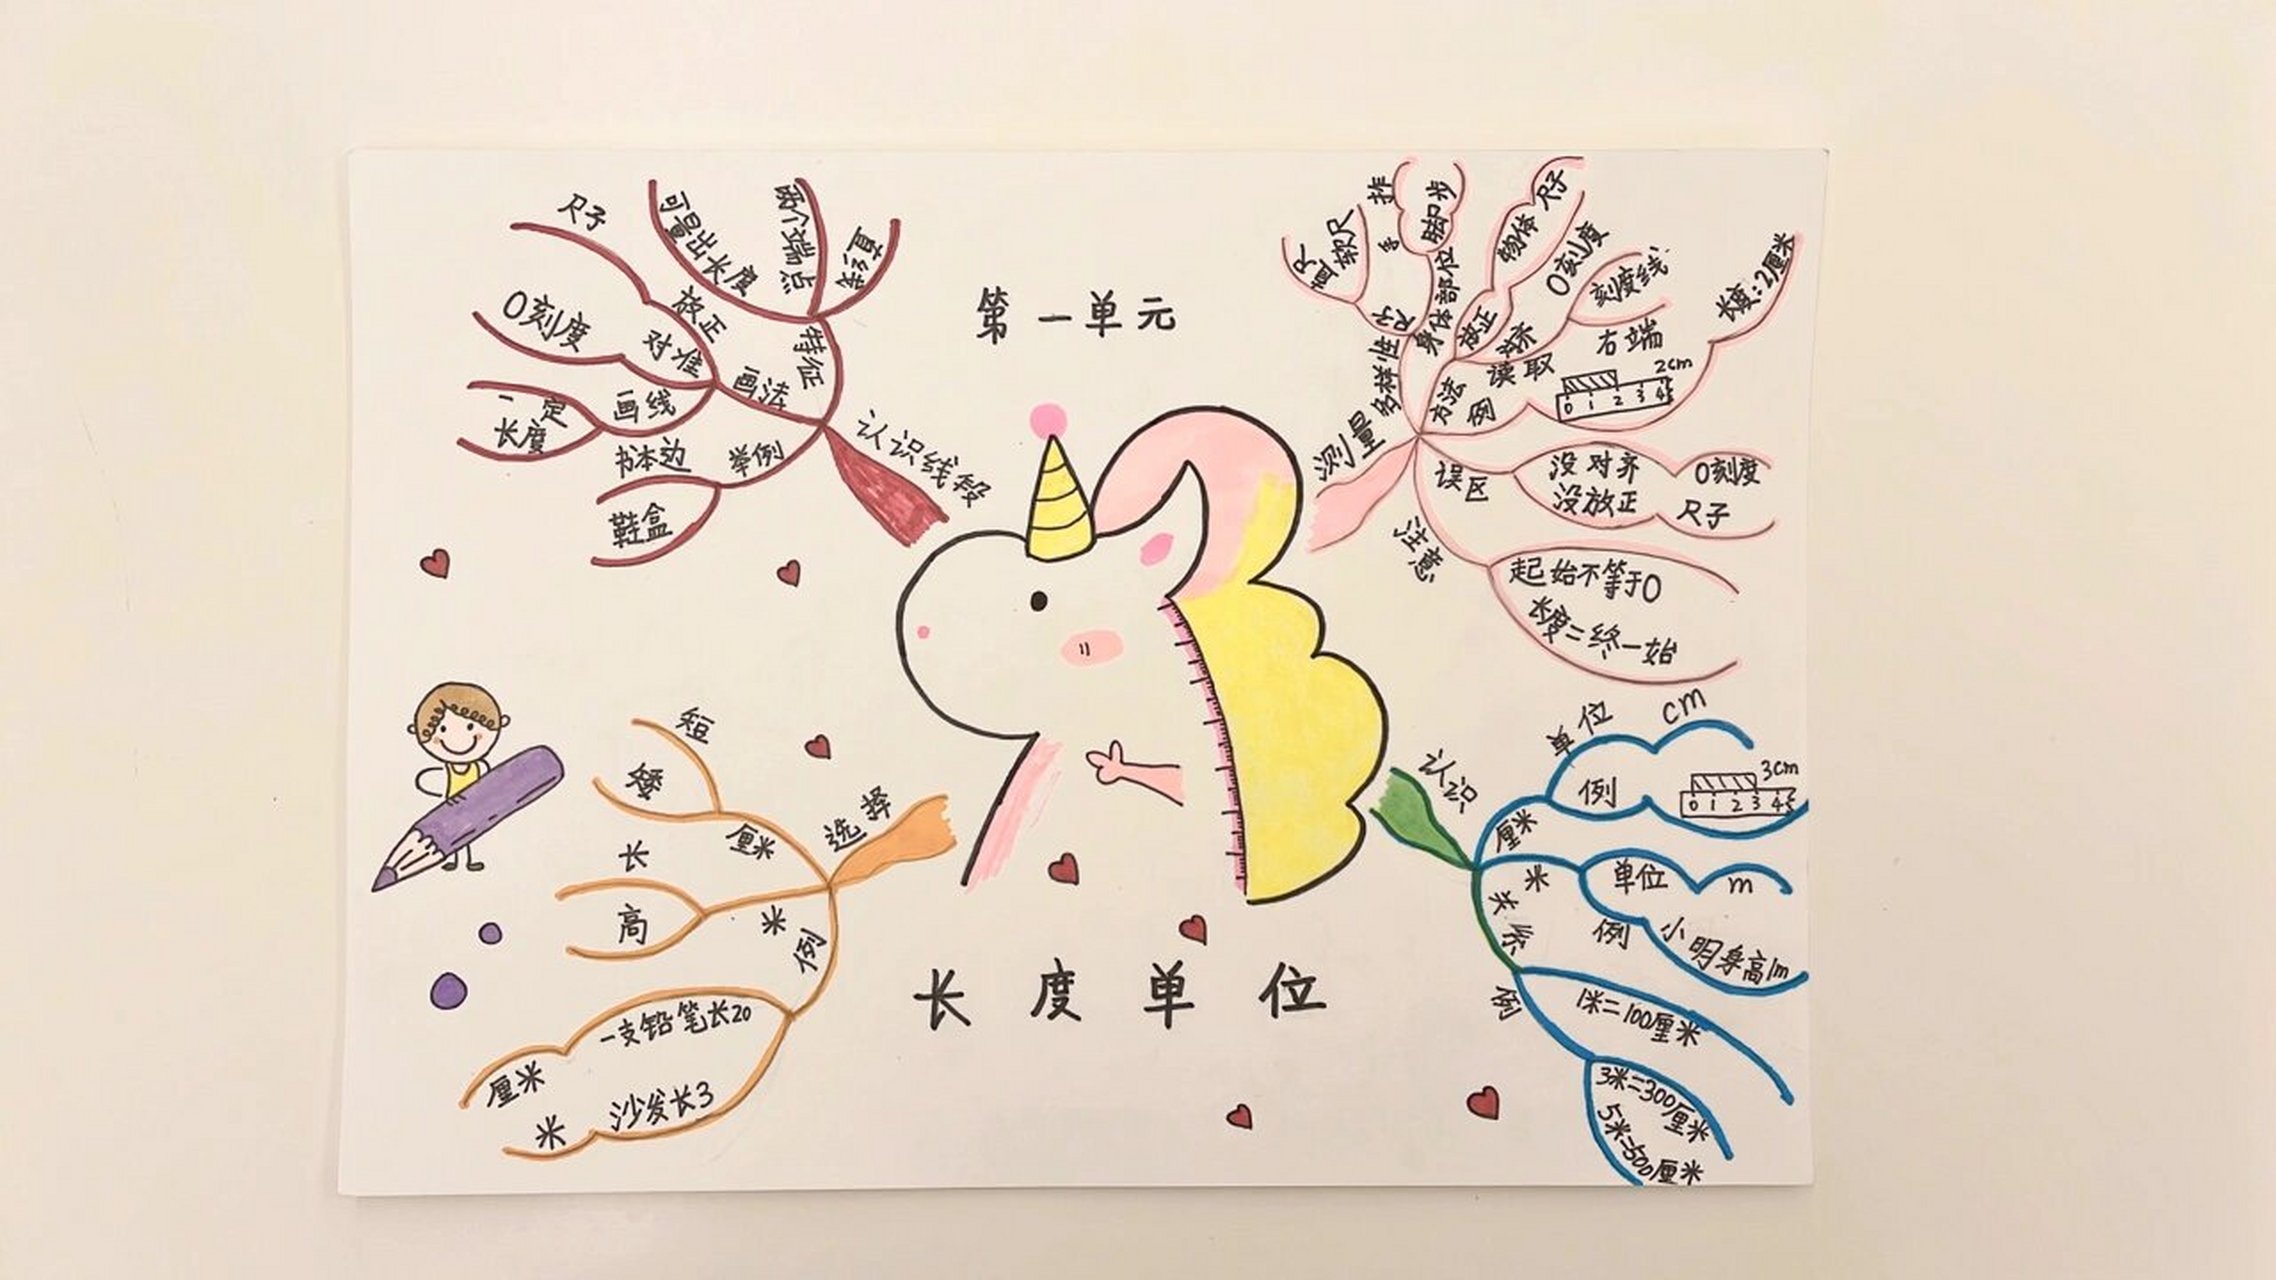 第一单元
长度单位
认识线段
特征
直线
两个端点
可量出长度
画法
放正
尺子
对准
0刻度
画线
一定
长度
举例
书本边
鞋盒
测量
多样性
尺子
直尺
软尺
身体部位
手
拃
脚步
方法
放正
物体
尺子
0刻度
读取
刻度线
右端
例
0 1 2 3 4
2cm
长度:2厘米
误区
没对齐
0刻度
没放正
尺子
注意
起始不等于0
长度=终-始
认识
厘米
单位
cm
例
0 1 2 3 4 5
3cm
米
单位
m
例
小明身高1m
关系
1米=100厘米
例
3米=300厘米
5米=500厘米
选择
厘米
短
矮
米
长
高
例
一支铅笔长20
厘米
沙发长3
米